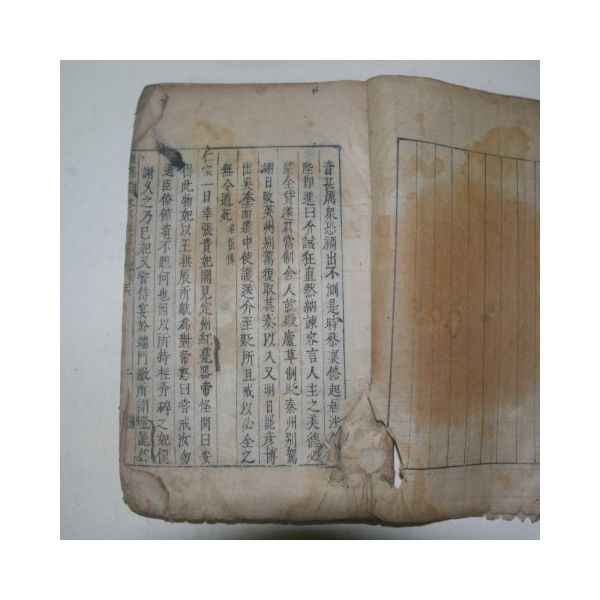 音甚厲衆恐禍出不測是時蔡襄修起居注
陛即進曰介誠狂直然納諫容言人主之美德必
望全貸遂召當制舍人就殿廬草制貶秦州別駕
翊日改英州別駕復取其奏以入又明日罷彦博
出吳奎而遣中使護送介至貶所且戒以必全之
無令道死 名臣傳
仁宗一日幸張貴妃閣見定州紅甆器帝怪問曰安
得此物妃以王拱辰所獻爲對帝怒曰嘗戒汝勿
通臣僚饋遺不聽何也因以所持柱斧碎之妃愧
謝久之乃已妃又嘗侍宴於端門服所謂燈籠錦